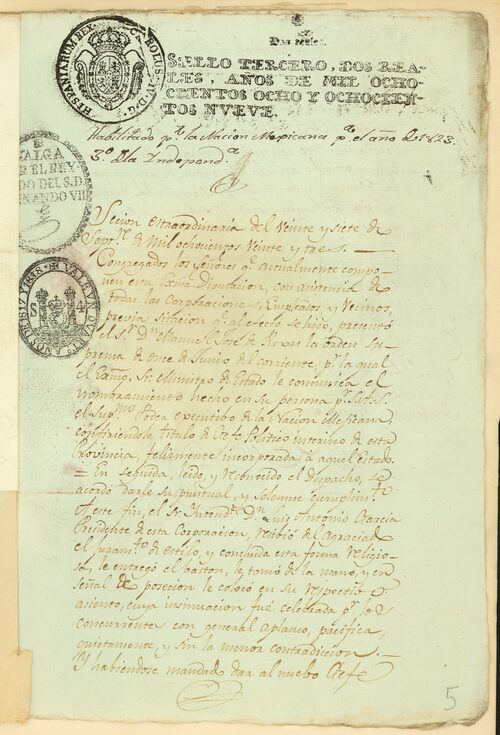 Dos reales.
SELLO TERCERO, DOS REA-
LES, AÑOS DE MIL OCHO-
CIENTOS OCHO Y OCHOCIEN-
TOS NUEVE.
HISPANIARUM REX CAROLUS IV D. G.
Habilitado pr. la Nacion Mexicana pa. el año de 1823.
3o. de la Independa.
VALGA
POR EL REY
DO DEL S. D.
FERNANDO VII
Secion extraordinaria del veinte y siete de
Septre. de mil ochocientos veinte y tres. —
Congregados los Señores qe. actualmente compo-
nen esta Exma. Diputacion, con asistencia de
todas las Corporaciones, Empleados, y Vecinos,
previa sitacion qe. al efecto se hiso, presentó
el Sr. Dn. Manuel José de Roxas la orden Su-
prema de once de Junio del corriente, pr. la qual
el Exmo. Sr. Ministro de Estado le comunica el
nombramiento hecho en su persona pr. S. A. S.
el Supmo. Poder executibo de la Nacion Mejicana,
confiriendole titulo de Gefe Politico interino de esta
Provincia, felizmente incorporada à aquel estado.
= En seguida, leido, y reconocido el Despacho, se
acordó darle su puntual, y solemne cumplimto.
A este fin, el Sr. Intendte. Dn. Luis Antonio Garcia
Presidente de esta Corporacion, resibió del Agraciado
el juramto. de estilo, y concluida esta forma religio-
sa, le entregó el baston, le tomó de la mano, y en
señal de posecion le colocó en su respectibo
asiento, cuya insinuacion fué celebrada pr. los
concurrentes con general aplauso, pacifica,
quietamente, y sin la menor contradiccion. —
Y habiendose mandado dar al nuebo Gefe
5